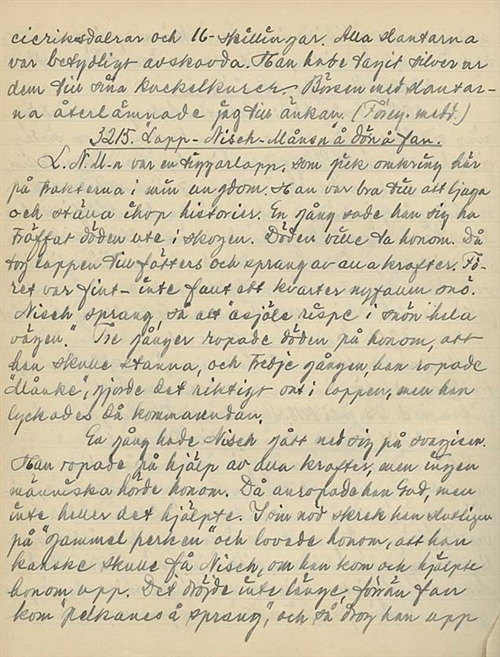 cieriksdalrar och 16-skillingar. Alla slantarna
var betydligt avskavda. Han hade tagit silver ur
dem till sina kuckelkurer. Börsen med slantar-
na återlämnade jag till änkan. (Föreg. medd.)
3215. "Lapp-Nisch-Månsn" å dön å fan.
L.N.M-n var en tiggarlapp, som gick omkring här
på trakterna i min ungdom. Han var bra till att ljuga
och ställa ihop historier. En gång sade han sig ha
träffat döden ute i skogen. Döden ville ta honom. Då
tog lappen till fötters och sprang av alla krafter. Fö-
ret var fint - inte fullt ett kvarter nyfallen snö.
Nisch sprang, så att "asjöle rispe i snön hela
vägen." Tre gånger ropade döden på honom, att
han skulle stanna, och tredje gången han ropade
"Månke", gjorde det riktigt ont i lappen, men han
lyckades då komma undan.
En gång hade Nisch gått ned sig på svagisen.
Han ropade på hjälp av alla krafter, men ingen
människa hörde honom. Då anropade han Gud, men
inte heller det hjälpte. I sin nöd skrek han slutligen
på "gammel perken" och lovade honom, att han
kanske skulle få Nisch, om han kom och hjälpte
honom upp. Det dröjde inte länge, förrän fan
kom "å sprang", och så drog han upp